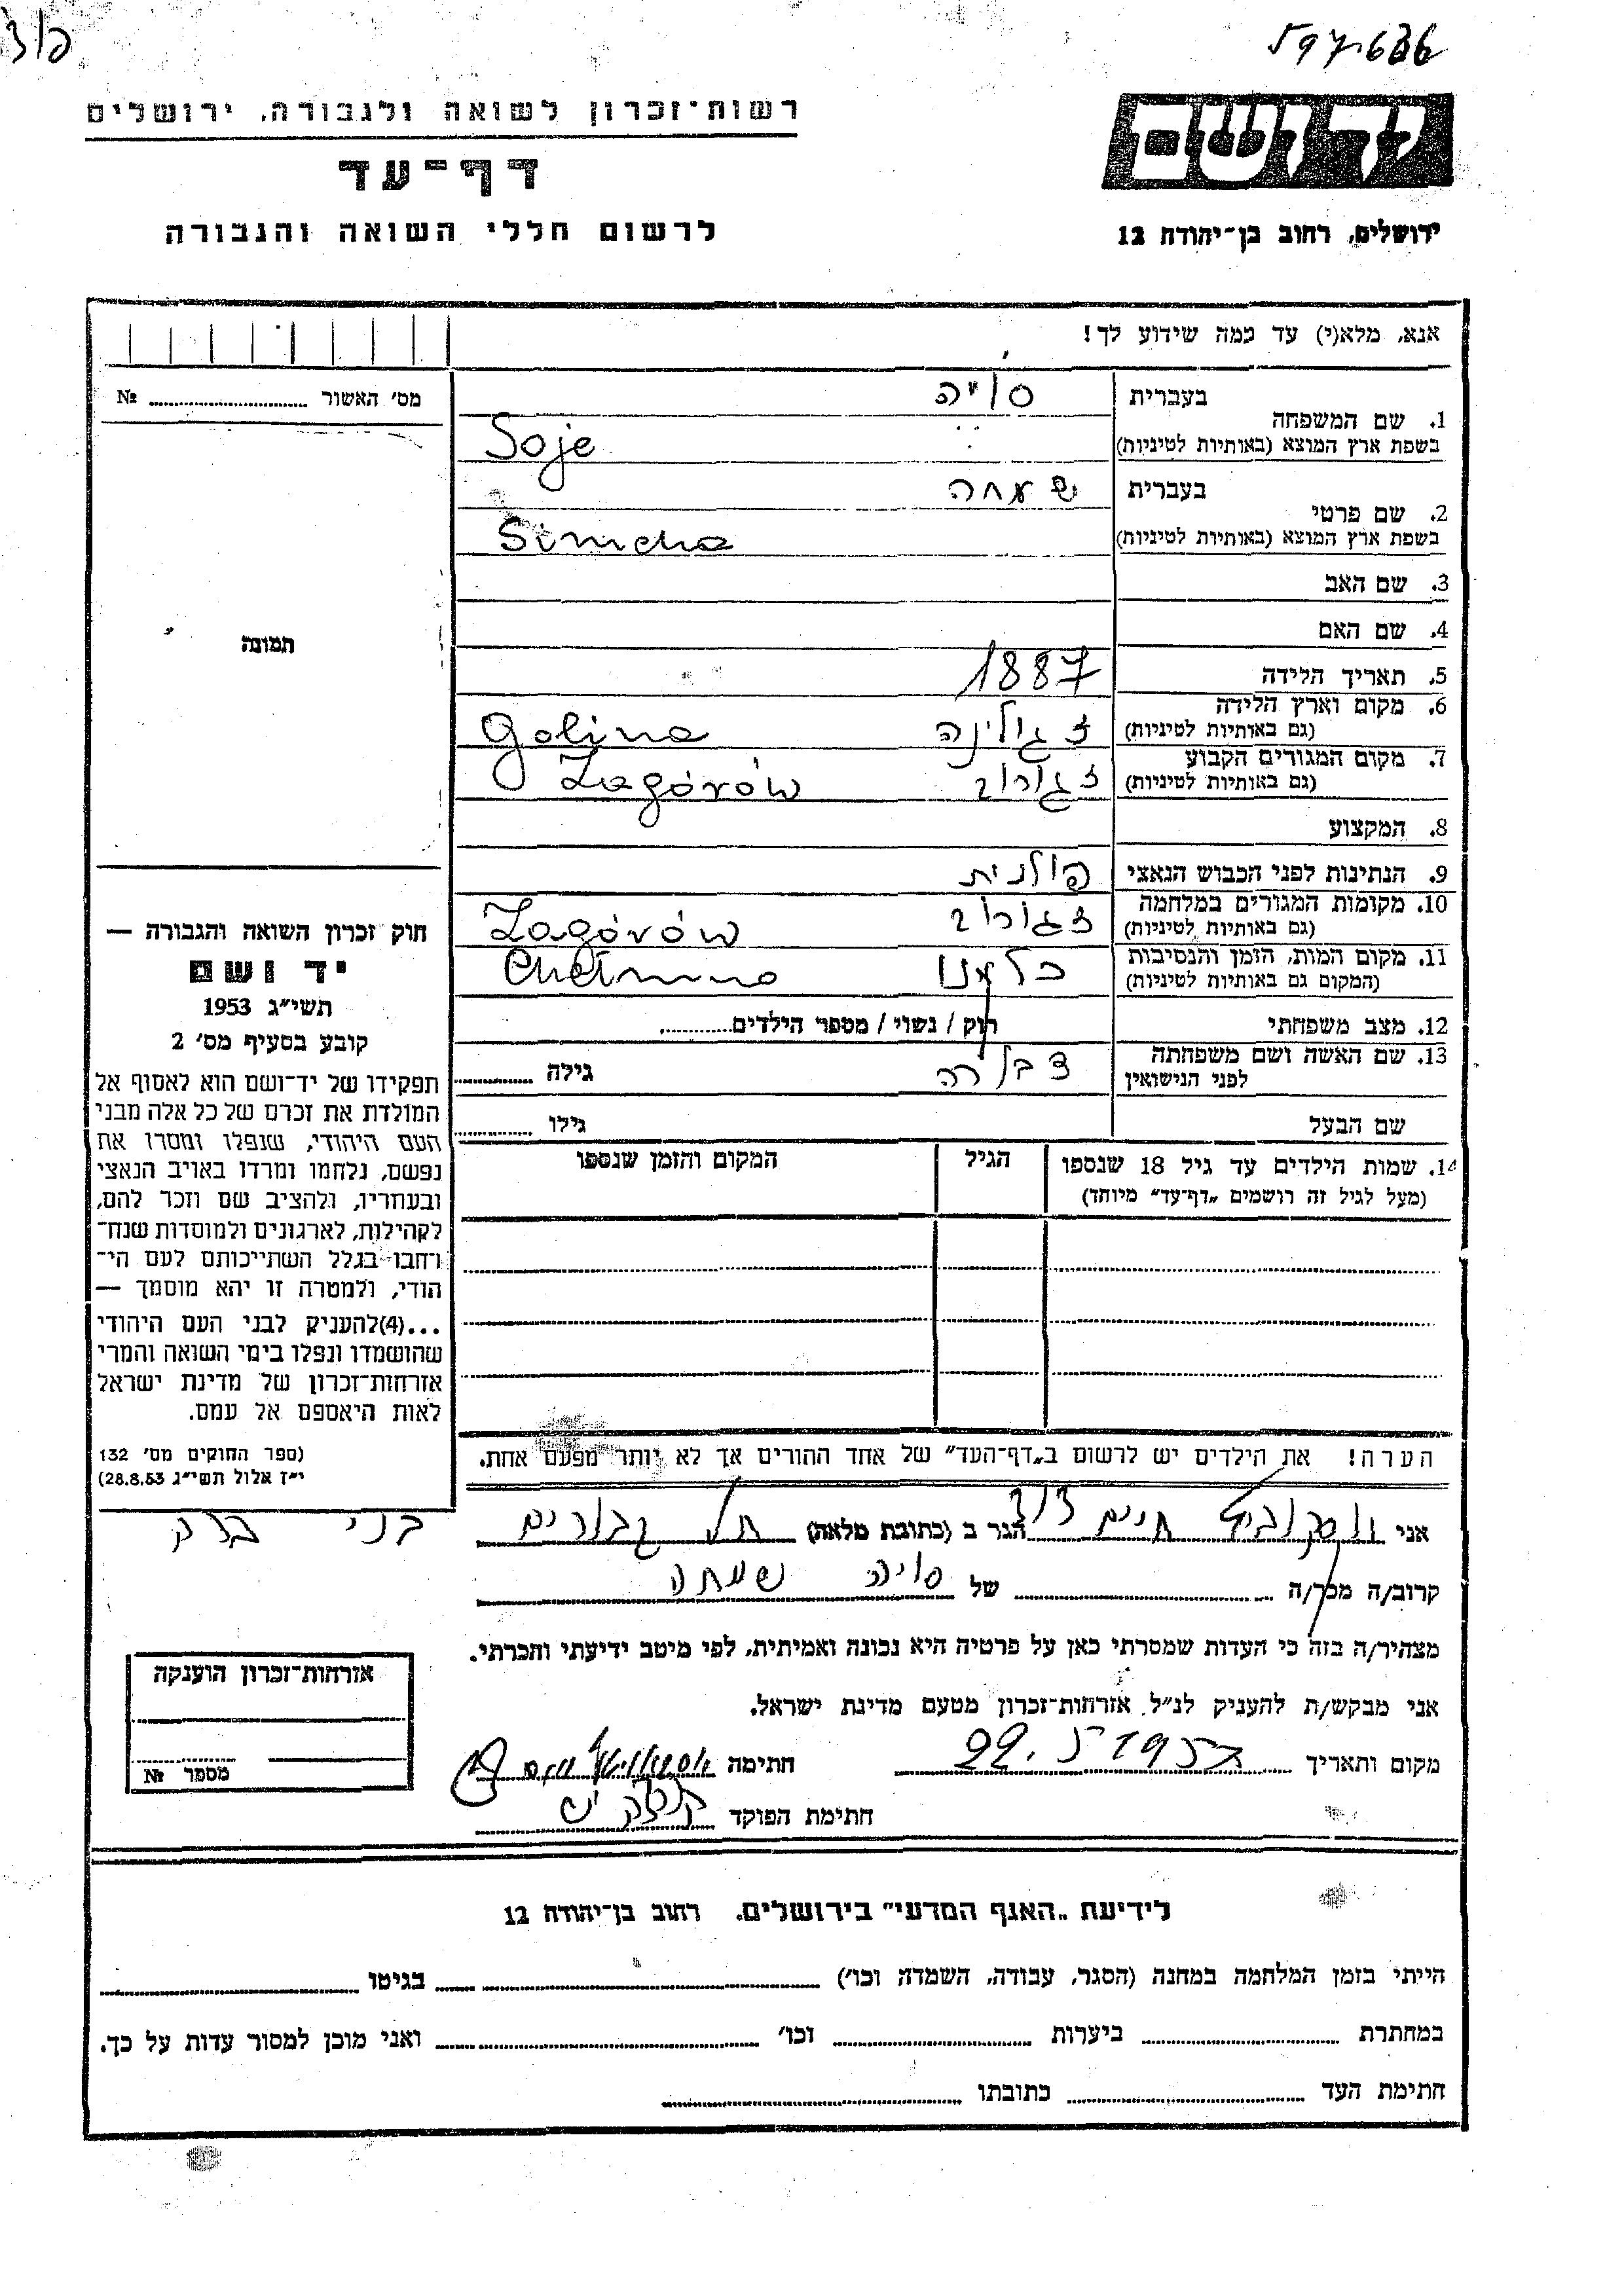 597.636
רשות־זכרון לשואה ולגבורה, ירושלים
דף־עד
לרשום חללי השואה והגבורה
ידושם
ירושלים, רחוב בן־יהודה 12
אנא, מלא(י) עד כמה שידוע לך!
מס׳ האשור № 
תמונה
חוק זכרון השואה והגבורה —
יד ושם
תשי״ג 1953
קובע בסעיף מס׳ 2
תפקידו של יד־ושם הוא לאסוף אל
המולדת את זכרם של כל אלה מבני
העם היהודי, שנפלו ומסרו את
נפשם, נלחמו ומרדו באויב הנאצי
ובעוזריו, ולהציב שם וזכר להם,
לקהילות, לארגונים ולמוסדות שנח־
רחבו בגלל השתייכותם לעם הי־
הודי, ולמטרה זו יהא מוסמך —
...(4) להעניק לבני העם היהודי
שהושמדו ונפלו בימי השואה והמרי
אזרחות־זכרון של מדינת ישראל
לאות היאספם אל עמם.
(ספר החוקים מס׳ 132
י״ז אלול תשי״ג 28.8.53)
בעברית סויה
1. שם המשפחה
בשפת ארץ המוצא (באותיות לטיניות) Soje
בעברית שמחה
2. שם פרטי
בשפת ארץ המוצא (באותיות לטיניות) Simcha
3. שם האב
4. שם האם
5. תאריך הלידה 1887
6. מקום וארץ הלידה
(גם באותיות לטיניות) גולינה Golina
7. מקום המגורים הקבוע
(גם באותיות לטיניות) זגורוב Zagórów
8. המקצוע
9. הנתינות לפני הכבוש הנאצי פולנית
10. מקומות המגורים במלחמה
(גם באותיות לטיניות) זגורוב Zagórów
11. מקום המות, הזמן והנסיבות
(המקום גם באותיות לטיניות) כלמנו Chełmno
12. מצב משפחתי רוק / נשוי / מספר הילדים
13. שם האשה ושם משפחתה
לפני הנישואין דבורה גילה
שם הבעל גילו
14. שמות הילדים עד גיל 18 שנספו הגיל המקום והזמן שנספו
(מעל לגיל זה רושמים „דף־עד״ מיוחד)
הערה! את הילדים יש לרשום ב„דף־העד״ של אחד ההורים אך לא יותר מפעם אחת.
אני חיים דוד הגר ב (כתובת מלאה) תל גבורים בני ברק
קרוב/ה מכר/ה של סויה שמחה
מצהיר/ה בזה כי העדות שמסרתי כאן על פרטיה היא נכונה ואמיתית, לפי מיטב ידיעתי והכרתי.
אני מבקש/ת להעניק לנ״ל אזרחות־זכרון מטעם מדינת ישראל.
מקום ותאריך 22.5 1957 חתימה
חתימת הפוקד
אזרחות־זכרון הוענקה
מספר №
לידיעת „האגף המדעי״ בירושלים, רחוב בן־יהודה 12
הייתי בזמן המלחמה במחנה (הסגר, עבודה, השמדה וכו׳) בגיטו
במחתרת ביערות וכו׳ ואני מוכן למסור עדות על כך.
חתימת העד כתובתו